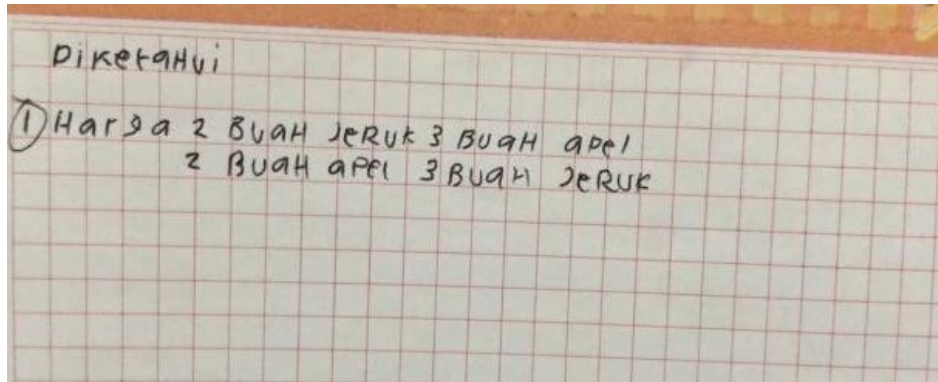 Diketahui
① Harga 2 Buah Jeruk 3 Buah apel
2 Buah apel 3 Buah Jeruk